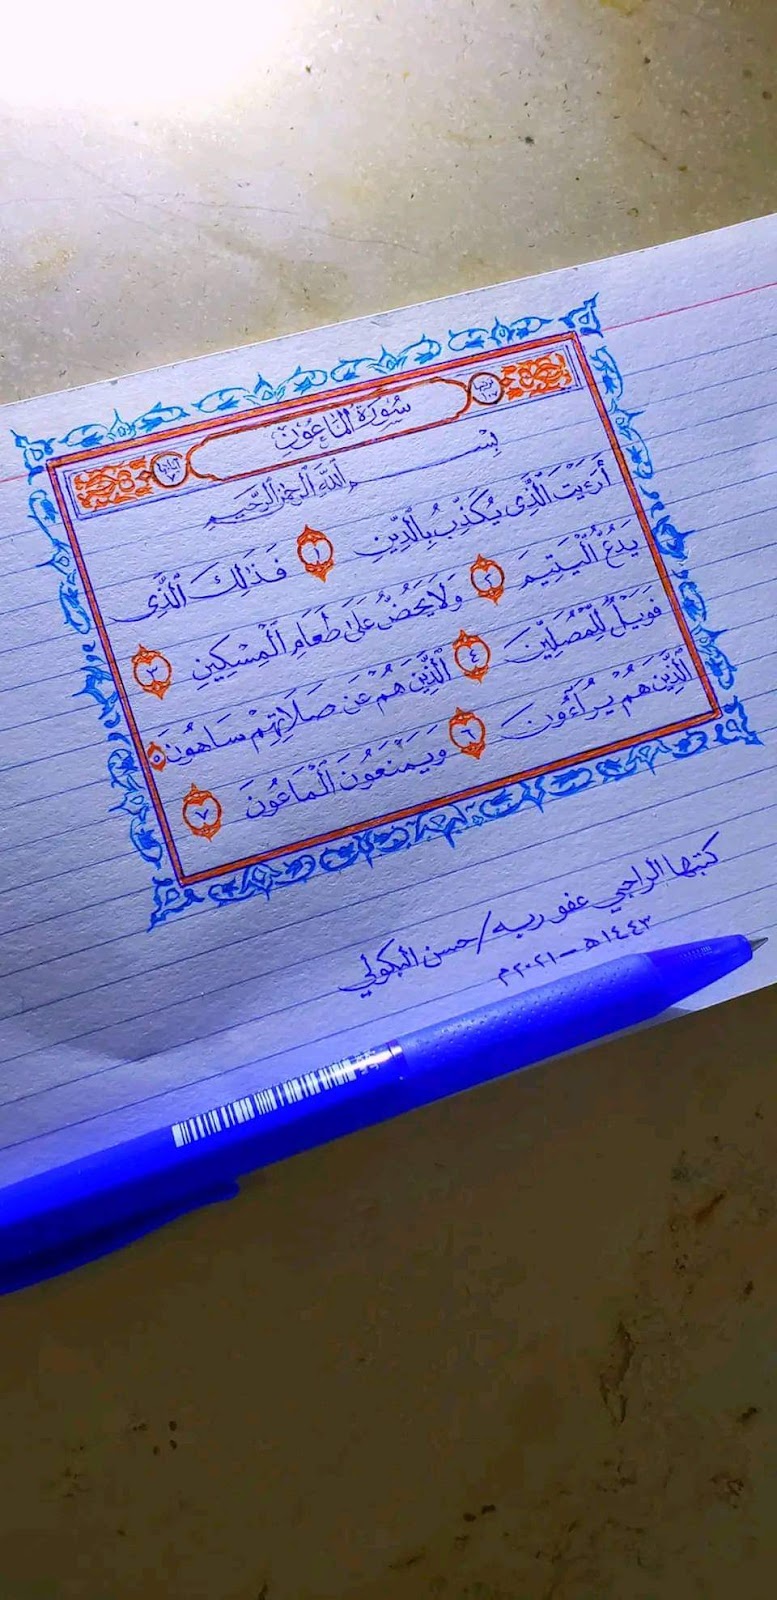 ترتيبها ١٠٧
سُورَةُ الْمَاعُونِ
آياتها ٧
بِسْمِ اللَّهِ الرَّحْمَٰنِ الرَّحِيمِ
أَرَءَيْتَ الَّذِى يُكَذِّبُ بِالدِّينِ ١ فَذَٰلِكَ الَّذِى
يَدُعُّ الْيَتِيمَ ٢ وَلَا يَحُضُّ عَلَىٰ طَعَامِ الْمِسْكِينِ ٣
فَوَيْلٌ لِّلْمُصَلِّينَ ٤ الَّذِينَ هُمْ عَن صَلَاتِهِمْ سَاهُونَ ٥
الَّذِينَ هُمْ يُرَآءُونَ ٦ وَيَمْنَعُونَ الْمَاعُونَ ٧
كتبها الراجي عفو ربه / حسن البكولي
١٤٤٣هـ - ٢٠٢١م